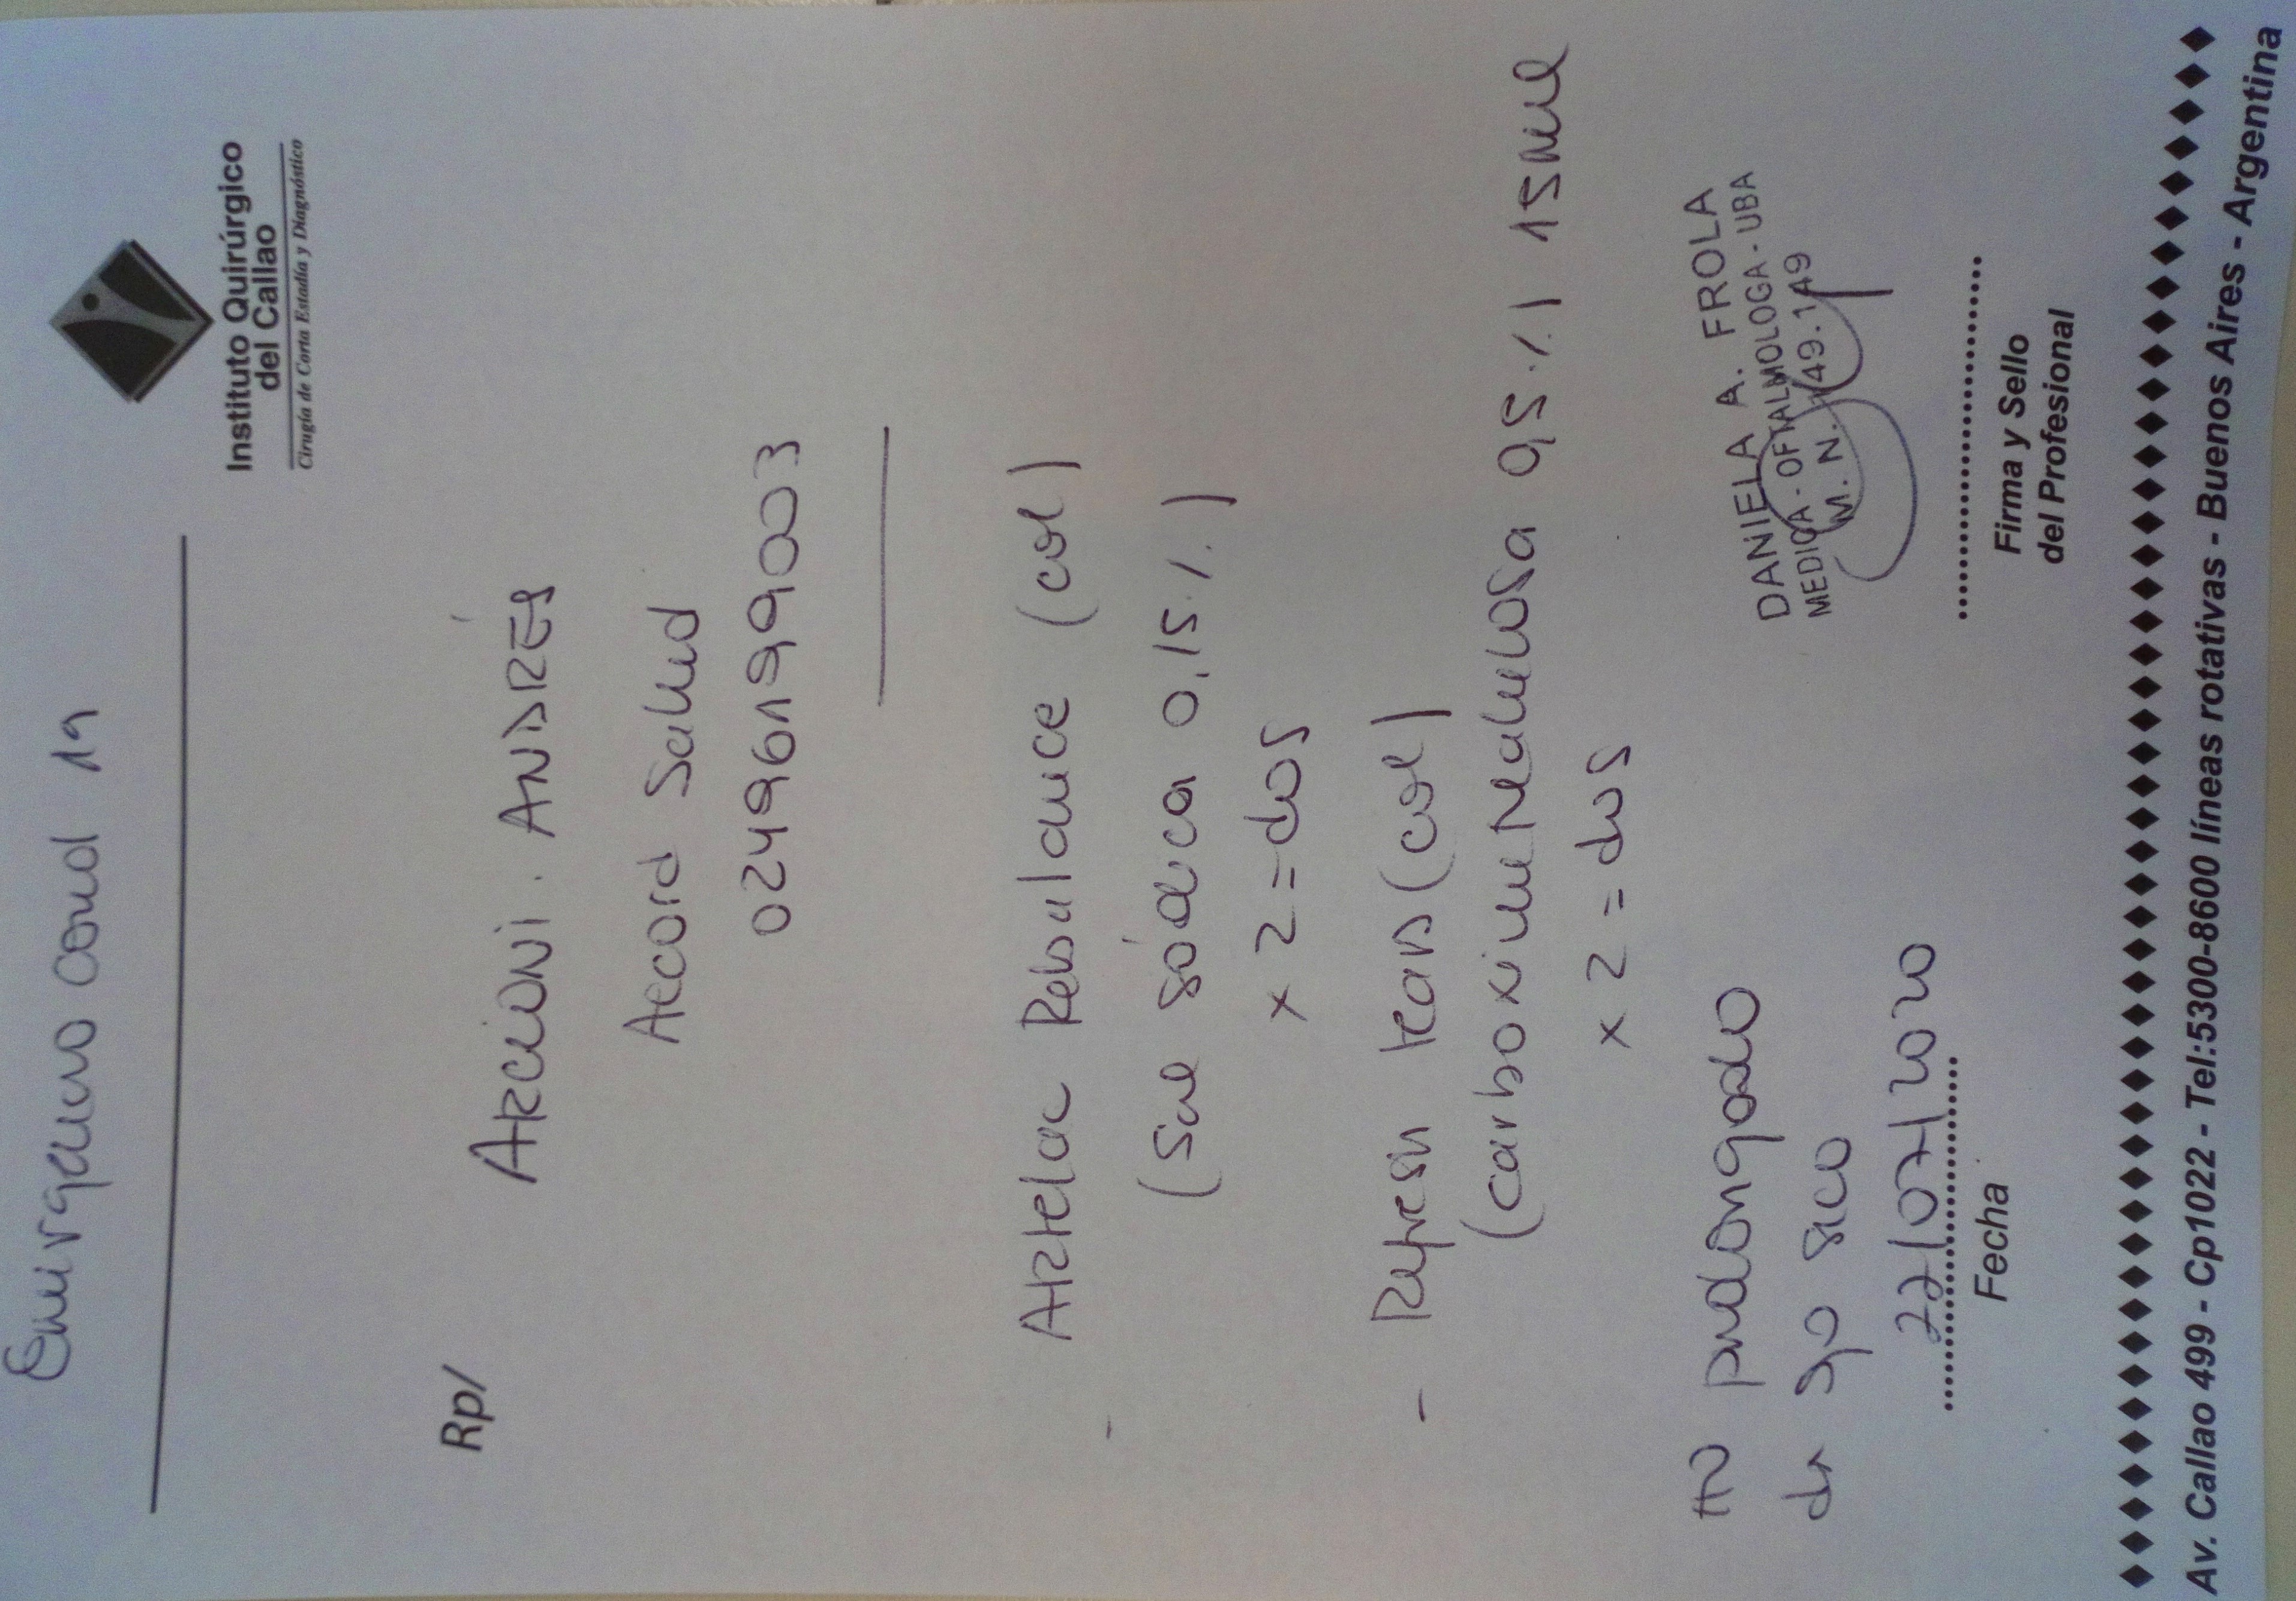 Instituto Quirúrgico
del Callao
Cirugía de Corta Estadía y Diagnóstico
Rp/
ARCIONI. ANDRÉS
Accord Salud
02496199003
- Artelac Rebalance (col)
(Sal sódica 0,15%)
x 2 = dos
- Refresh tears (col)
(carboximetilcelulosa 0,5%) 15ml
x 2 = dos
tto prolongado
de ojo seco
22/07/2020
Fecha
DANIELA A. FROLA
MEDICA - OFTALMOLOGA - UBA
M. N. 149.149
Firma y Sello
del Profesional
Av. Callao 499 - Cp1022 - Tel:5300-8600 líneas rotativas - Buenos Aires - Argentina